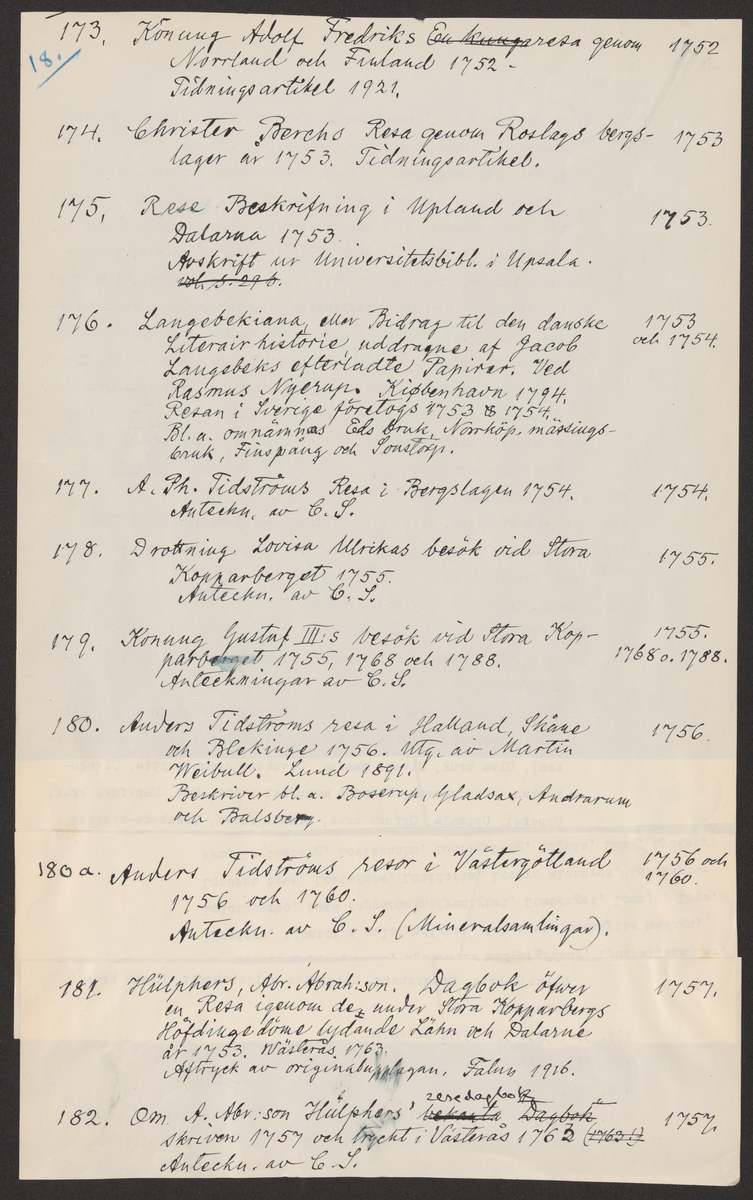 173. Konung Adolf Fredriks En kunga resa genom 1752
18.
Norrland och Finland 1752 -
Tidningsartikel 1921.
174. Christer Berchs Resa genom Roslags bergs- 1753
lager år 1753. Tidningsartikel.
175. Rese Beskrifning i Upland och 1753.
Dalarna 1753.
Avskrift ur Universitetsbibl. i Upsala.
s. 296.
176. Langebekiana, eller Bidrag til den danske 1753
Literairhistorie, uddragne af Jacob och 1754.
Langebeks efterladte Papirer. Ved
Rasmus Nyerup. Kiøbenhavn 1794.
Resan i Sverige företogs 1753 & 1754.
Bl. a. omnämnas Eds bruk, Norrköp. mässings-
bruk, Finspång och Sonstorp.
177. A. Ph. Tidströms Resa i Bergslagen 1754. 1754.
Anteckn. av C. S.
178. Drottning Lovisa Ulrikas besök vid Stora 1755.
Kopparberget 1755.
Anteckn. av C. S.
179. Konung Gustaf III:s besök vid Stora Kop- 1755.
parberget 1755, 1768 och 1788. 1768 o. 1788.
Anteckningar av C. S.
180. Anders Tidströms resa i Halland, Skåne 1756.
och Blekinge 1756. Utg. av Martin
Weibull. Lund 1891.
Beskriver bl. a. Boserup, Gladsax, Andrarum
och Balsberg.
180 a. Anders Tidströms resor i Västergötland 1756 och
1756 och 1760. 1760.
Anteckn. av C. S. (Mineralsamlingar).
181. Hülphers, Abr. Abrah:son. Dagbok öfwer 1757.
en Resa igenom de, under Stora Kopparbergs
Höfdingedöme lydande Lähn och Dalarne
år 1753. Wästerås 1763.
Aftryck av originalupplagan, Falun 1916.
resedagbok
182. Om A. Abr:son Hülphers' bekanta Dagbok" 1757.
skriven 1757 och tryckt i Västerås 1762 (1763!)
Anteckn. av C. S.